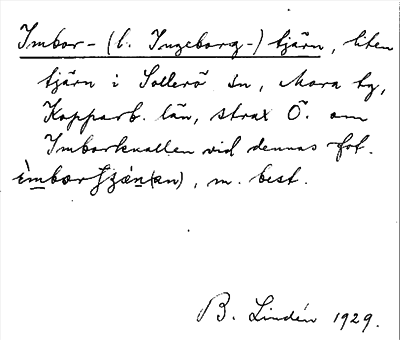 Imbor- (l. Ingeborg-) tjärn, liten
tjärn i Sollerö sn, Mora tg,
Kopparb. län, strax Ö. om
Imborknallen vid dennas fot.
m. best.
B. Lindén 1929.